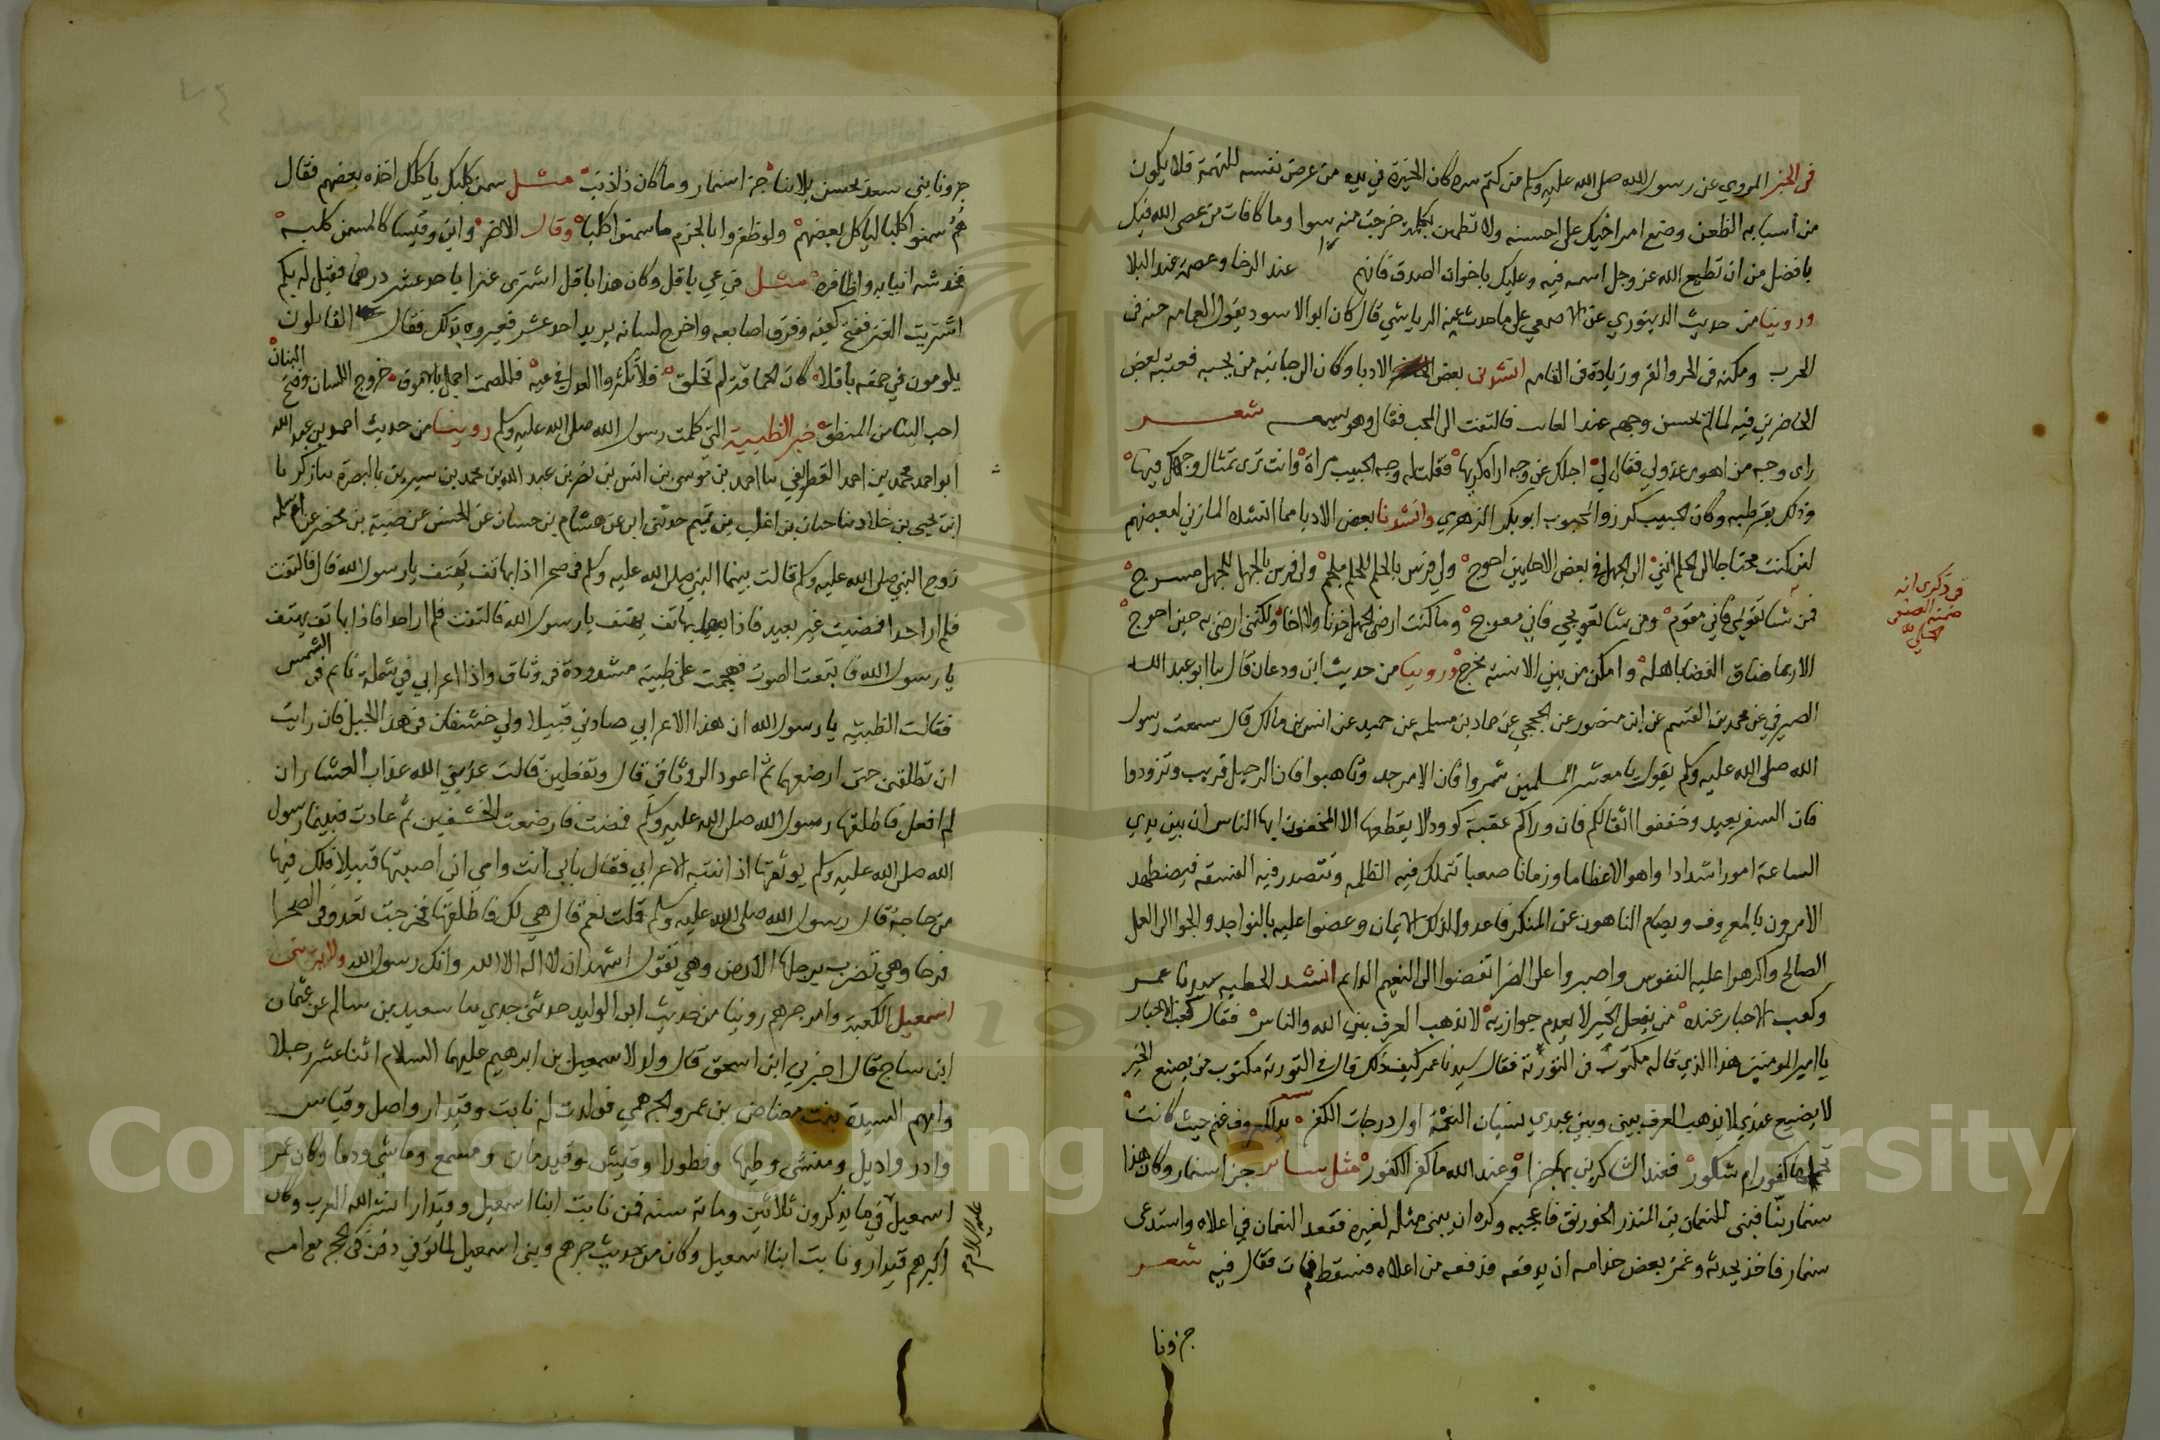 فى الخبر المروي عن رسول الله صلى الله عليه وسلم من كتم سره كان الخيرة في يده من عرض نفسه للتهمة فلا يكون
من أساء به الظن وضع امر اخيك على احسنه ولا تظن بكلمة خرجت منه سوا وما كافات من عصى الله فيك
بافضل من ان تطيع الله عز وجل فيه وعليك باخوان الصدق فانهم عند الرخا وعصمة عند البلا
وروينا من حديث الدينوري عن الاصمعي على ما حدث عنه الرياشي قال كان ابو الاسود يقول العمامه جنه فى
الحرب ومكنه فى الحر والقر وزيادة فى القامه انشدنى بعض الادبا وكان الى جانبه من يحبه فعتبه بعض
الحاضرين فيه لما لم يحسن وجهه عند فالتفت الى المحب فقال وهو شعر
راى وجه من اهوى عذولي فقال لي اجلك عن وجه اراه كريها فقلت له وجه الحبيب مراة وانت ترى تمثال وجهك فيها
وكان الحبيب ابو بكر الزهري وانشدنا بعض الادبا مما انشده المازني لبعضهم
لئن كنت محتاجا الى الحلم انني الى الجهل فى بعض الاحايين احوج ولي فرس بالحلم للحلم ملجم ولي فرس بالجهل للجهل مسرج
فمن شا تقويمي فاني مقوم ومن شا تعويجي فاني معوج وما كنت ارضى الجهل خدنا ولا اخا ولكنني ارضى به حين احوج
الا ربما ضاق الفضا باهله وامكن من بين الاسنة مخرج وروينا من حديث ابن ودعان قال نا ابو عبد الله
الصيرفي عن محمد بن القسم عن ابن منصور عن الحجبي عن حماد بن سلمه عن حميد عن انس بن مالك قال سمعت رسول
الله صلى الله عليه وسلم يقول يا معشر المسلمين شمروا فان الامر جد وتاهبوا فان الرحيل قريب وتزودوا
فان السفر بعيد وخففوا اثقالكم فان وراكم عقبة كوود لا يقطعها الا المخفون ايها الناس ان بين يدي
الساعة امورا شدادا واهوالا عظاما وزمانا صعبا تتملك فيه الظلمه وتتصدر فيه الفسقه فيضطهد
الامرون بالمعروف ويضام الناهون عن المنكر فاعدوا لذلك الايمان وعضوا عليه بالنواجد والجوا الى العمل
الصالح واكرهوا عليه النفوس واصبروا على الضرا تفضوا الى النعيم الدايم انشد الحطيه سيدنا عمر
وكعب الاحبار عنده من يفعل الخير لا يعدم جوازيه لا يذهب العرف بين الله والناس فقال كعب الاحبار
يا امير المومنين هذا الذي قاله مكتوب فى التورية فقال سيدنا عمر كيف ذلك قال فى التورية مكتوب من يصنع الخير
لا يضيع عندي لا يذهب العرف بيني وبين عبدي نسيان النعمة اول درجات الكفر يد المعروف غنم حيث كانت
كفور ام شكور فعند الشاكرين لها جزا وعند الله ما كفر الكفور مثل ساير جزا سنمار وكان هذا
سنمار بنّا فبنى للنعمان بن المنذر الخورنق فاعجبه وكره ان يبنى مثله لغيره فقعد النعمان في اعلاه واستدعى
سنمار فاخذ يحدثه وغمز بعض خدامه ان يدفعه فدفعه من اعلاه فسقط فمات فقال فيه شعر
جزونا
جزونا بني سعد بحسن بلاينا جزا سنمار وما كان ذا ذنب مثل سمن كلبك ياكلك اخذه بعضهم فقال
هم سمنوا كلبا لياكل بعضهم ولو ظفروا بالحزم ما سمنوا كلبا وقال الاخر واني وقيسا كالمسمن كلبه
فخدشه انيابه واظافره مثل فى عي باقل وكان هذا باقل اشترى عنزا باحد عشر درهما فقيل له بكم
اشتريت العنز ففتح كفيه وفرق اصابعه واخرج لسانه يريد احد عشر فعيروه بذلك فقال القايلون
يلومون في حمقه باقلا كان الحماقة لم تخلق فلا تكثروا العذل في عيه فللصمت اجمل بالاموق خروج اللسان وفتح البنان
احب الينا من المنطق خبر الظبية التي كلمت رسول الله صلى الله عليه وسلم روينا من حديث احمد بن عبد الله
ابو احمد محمد بن احمد الغطريفي نا احمد بن موسى بن انس بن نصر بن عبد الله بن محمد بن سيرين بالبصرة نا زكريا
ابن يحيى بن خلاد نا حبان بن اغلب بن تميم حدثني ابي عن هشام بن حسان عن الحسن عن ضبة بن محصن عن ام سلمه
زوج النبي صلى الله عليه وسلم قالت بينما النبي صلى الله عليه وسلم فى صحرا اذا بهاتف يهتف يا رسول الله قال فالتفت
فلم ار احدا فمضيت غير بعيد فاذا بهاتف يهتف يا رسول الله فالتفت فلم ار احدا فاذا بهاتف يهتف
يا رسول الله فاتبعت الصوت فهجمت على ظبية مشدودة فى وثاق واذا اعرابي في شملة نايم فى الشمس
فقالت الظبيه يا رسول الله ان هذا الاعرابي صادني قبيلا ولي خشفان فى هذا الجبل فان رايت
ان تطلقني حتى ارضعهما ثم اعود الى وثاقي قال وتفعلين قالت عذبني الله عذاب العشار ان
لم افعل فاطلقها رسول الله صلى الله عليه وسلم فمضت فارضعت الخشفين ثم عادت فبينما رسول
الله صلى الله عليه وسلم يوثقها اذ انتبه الاعرابي فقال بابي انت وامي اني اصبتها قبيلا فلك فيها
من حاجة قال رسول الله صلى الله عليه وسلم قلت نعم قال هي لك فاطلقها فخرجت تعدو فى الصحرا
فرحا وهي تضرب برجلها الارض وهي تقول اشهد ان لا اله الا الله وانك رسول الله ولاية بني
اسمعيل الكعبة وامر جرهم روينا من حديث ابي الوليد حدثني جدي نا سعيد بن سالم عن عثمان
ابن ساج قال اخبرني ابن اسحق قال ولد لاسمعيل بن ابراهيم عليهما السلام اثنا عشر رجلا
وامهم السيدة بنت مضاض بن عمرو الجرهمي فولدت له نابت وقيدار واصل وقياس
وادر واديل ومنشى وطيما وقطورا وقيش وقيدمان ومسمع وماشي ودما وكان عمر
اسمعيل في ما يذكرون ثلاثين وماية سنه فمن نابت ابنا اسمعيل وقيدار انشر الله العرب وكان
اكبرهم قيدار ونابت ابنا اسمعيل وكان من حديث جرهم وبني اسمعيل لما توفي دفن فى الحجر مع امه
عليه السلام